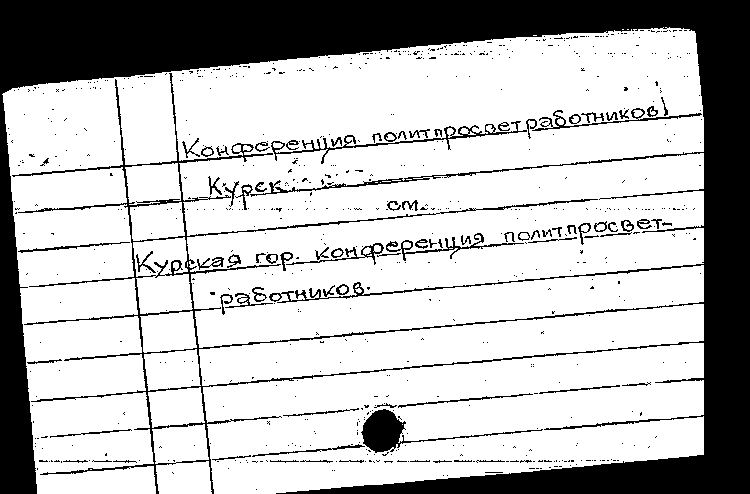 Конференция политпросветработников,
Курск.
см.
Курская гор. конференция политпросвет-
работников.